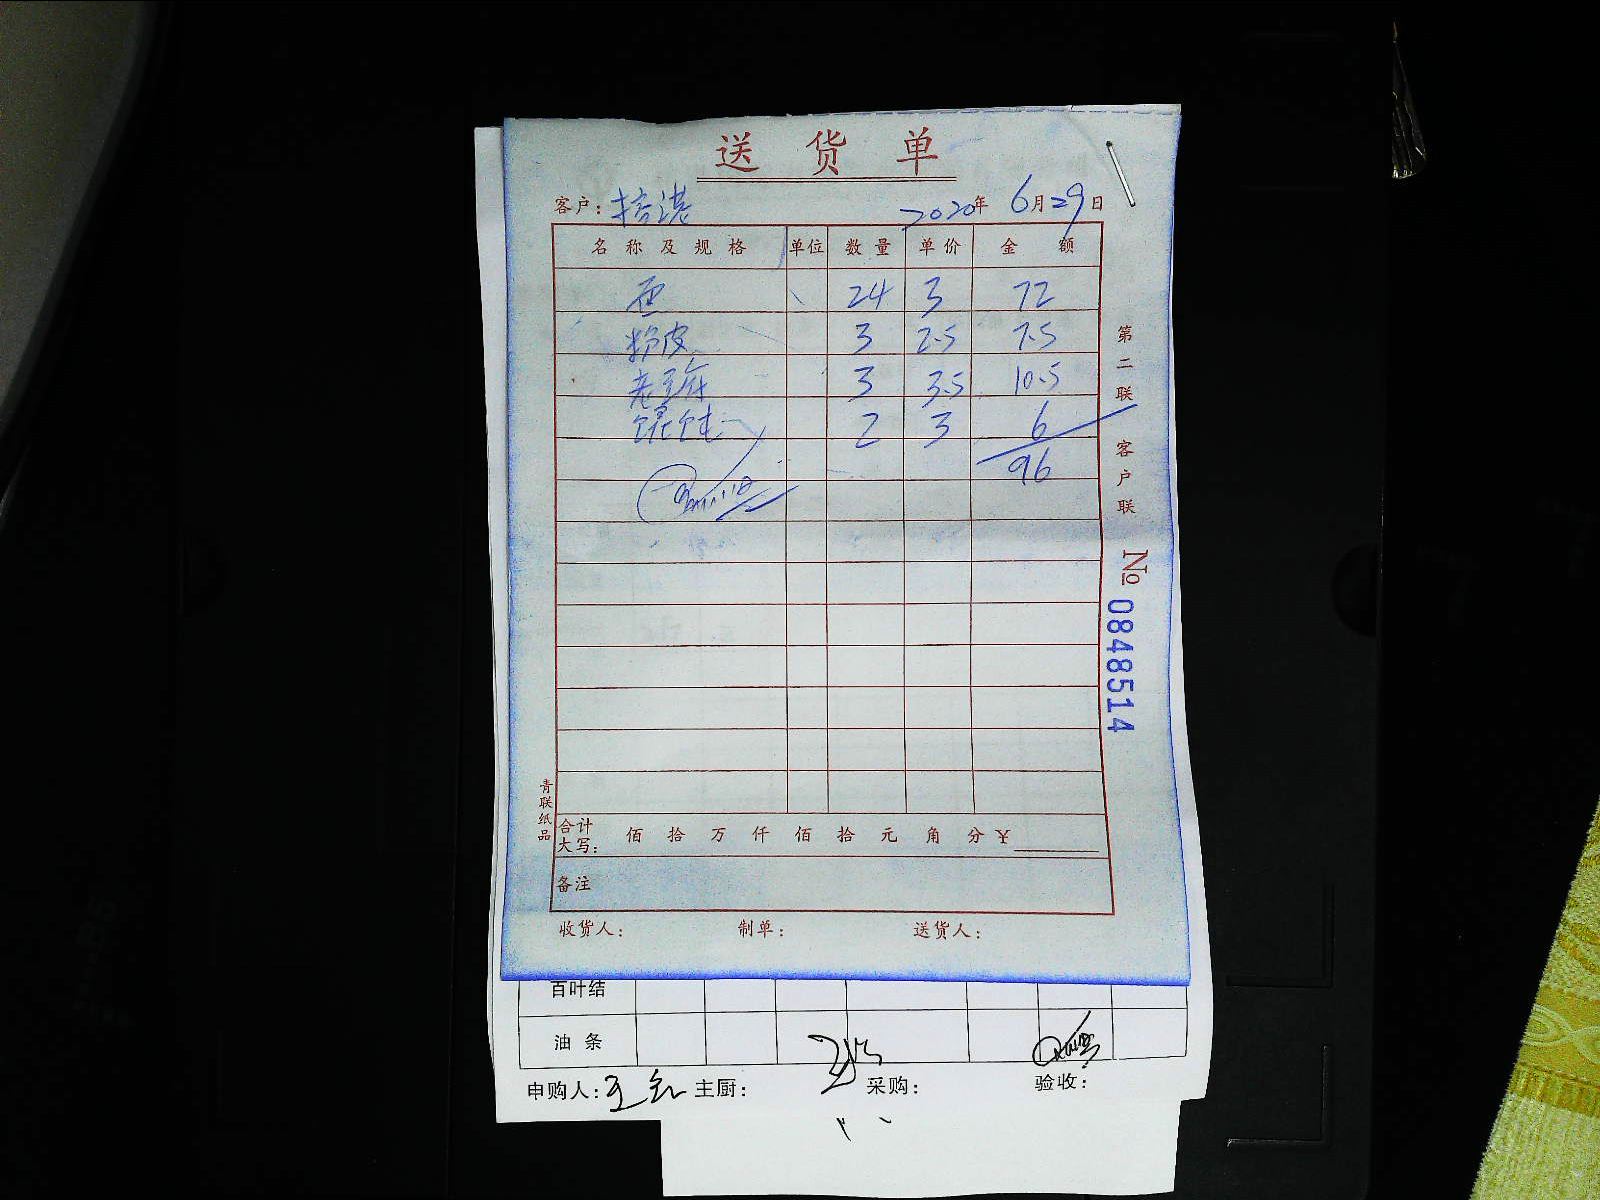 送货单
客户: 2020年 6月29日
名称及规格 单位 数量 单价 金额
面 24 3 72
粉皮 3 2.5 7.5
老豆腐 3 3.5 10.5
馄饨 2 3 6
96
第二联 客户联
№ 0848514
青联纸品
合计大写: 佰 拾 万 仟 佰 拾 元 角 分 ¥
备注
收货人: 制单: 送货人:
百叶结
油条
申购人: 主厨: 采购: 验收: